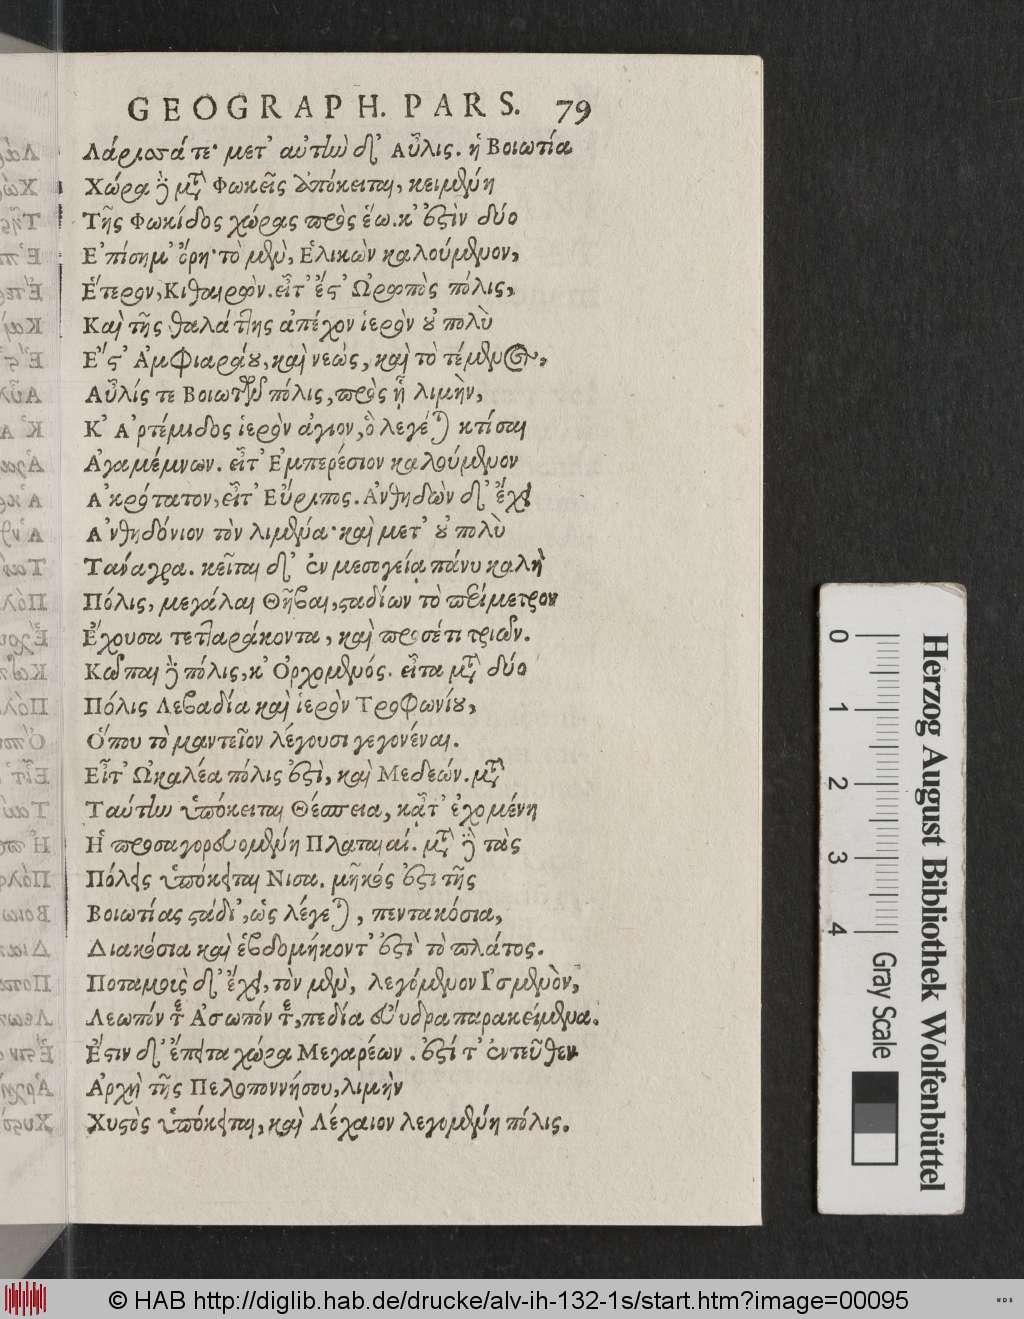 GEOGRAPH. PARS. 79
Λάρισσά τε· μετ' αὐτὴν δ' Αὖλις. ἡ Βοιωτία
Χώρα ἢ μετὰ Φωκεῖς ὑπόκειται, κειμένη
Τῆς Φωκίδος χώρας πρὸς ἕω. κ' ἐστὶν δύο
Ἐπίσημ' ὄρη· τὸ μὲν, Ἑλικὼν καλούμενον,
Ἕτερον, Κιθαιρών. εἶτ' ἔς' Ὠρωπὸς πόλις,
Καὶ τῆς θαλάττης ἀπέχον ἱερὸν οὐ πολὺ
Ἔς' Ἀμφιαράου, καὶ νεώς, καὶ τὸ τέμενος,
Αὖλίς τε Βοιωτῶν πόλις, πρὸς ᾗ λιμὴν,
Κ' Ἀρτέμιδος ἱερὸν ἅγιον, ὃ λέγεται κτίσαι
Ἀγαμέμνων. εἶτ' Ἐμπερέσιον καλούμενον
Ἀκρότατον, εἶτ' Εὔριπος. Ἀνθηδὼν δ' ἔχει
Ἀνθηδόνιον τὸν λιμένα· καὶ μετ' οὐ πολὺ
Τανάγρα. κεῖται δ' ἐν μεσογείᾳ πάνυ καλὴ
Πόλις, μεγάλαι Θῆβαι, σταδίων τὸ περίμετρον
Ἔχουσα τετταράκοντα, καὶ προσέτι τριῶν.
Κῶπαι ἢ πόλις, κ' Ὀρχομενός. εἶτα μετὰ δύο
Πόλις Λεβαδία καὶ ἱερὸν Τροφωνίου,
Ὅπου τὸ μαντεῖον λέγουσι γεγονέναι.
Εἶτ' Ὠκαλέα πόλις ἐστὶ, καὶ Μεδεών. μετὰ
Ταύτην ὑπόκειται Θέσπεια, κᾆτ' ἐχομένη
Ἡ προσαγορευομένη Πλαταιαί. μετὰ ἢ τὰς
Πόλεις ὑπόκειται Νισα. μῆκός ἐστι τῆς
Βοιωτίας στάδι', ὡς λέγεται, πεντακόσια,
Διακόσια καὶ ἑβδομήκοντ' ἐστὶ τὸ πλάτος.
Ποταμοὺς δ' ἔχει, τὸν μὲν, λεγόμενον Ἰσμενὸν,
Λεωπόν τε Ἀσωπόν τε, πεδία εὔυδρα παρακείμενα.
Ἔστιν δ' ἔπειτα χώρα Μεγαρέων. ἐστί τ' ἐντεῦθεν
Ἀρχὴ τῆς Πελοποννήσου, λιμὴν
Χυτὸς ὑπόκειται, καὶ Λέχαιον λεγομένη πόλις.
Herzog August Bibliothek Wolfenbüttel
0 1 2 3 4 Gray Scale
© HAB http://diglib.hab.de/drucke/alv-ih-132-1s/start.htm?image=00095